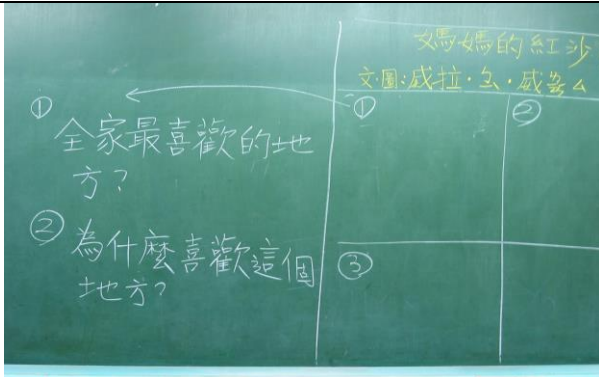 媽媽的紅沙
文圖:威拉·畢·威廉厶
① 全家最喜歡的地
方?
② 為什麼喜歡這個
地方?
①
②
③